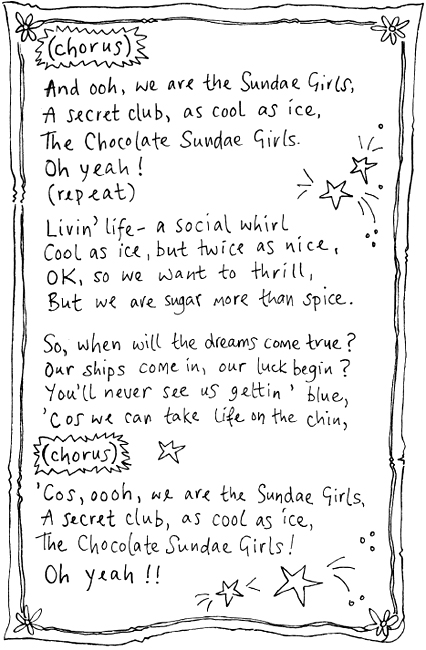 (chorus)
And ooh, we are the Sundae Girls,
A secret club, as cool as ice,
The Chocolate Sundae Girls.
Oh yeah!
(repeat)
Livin' life - a social whirl
Cool as ice, but twice as nice,
OK, so we want to thrill,
But we are sugar more than spice.
So, when will the dreams come true?
Our ships come in, our luck begin?
You'll never see us gettin' blue,
'Cos we can take life on the chin,
(chorus)
'Cos, oooh, we are the Sundae Girls,
A secret club, as cool as ice,
The Chocolate Sundae Girls!
Oh yeah!!